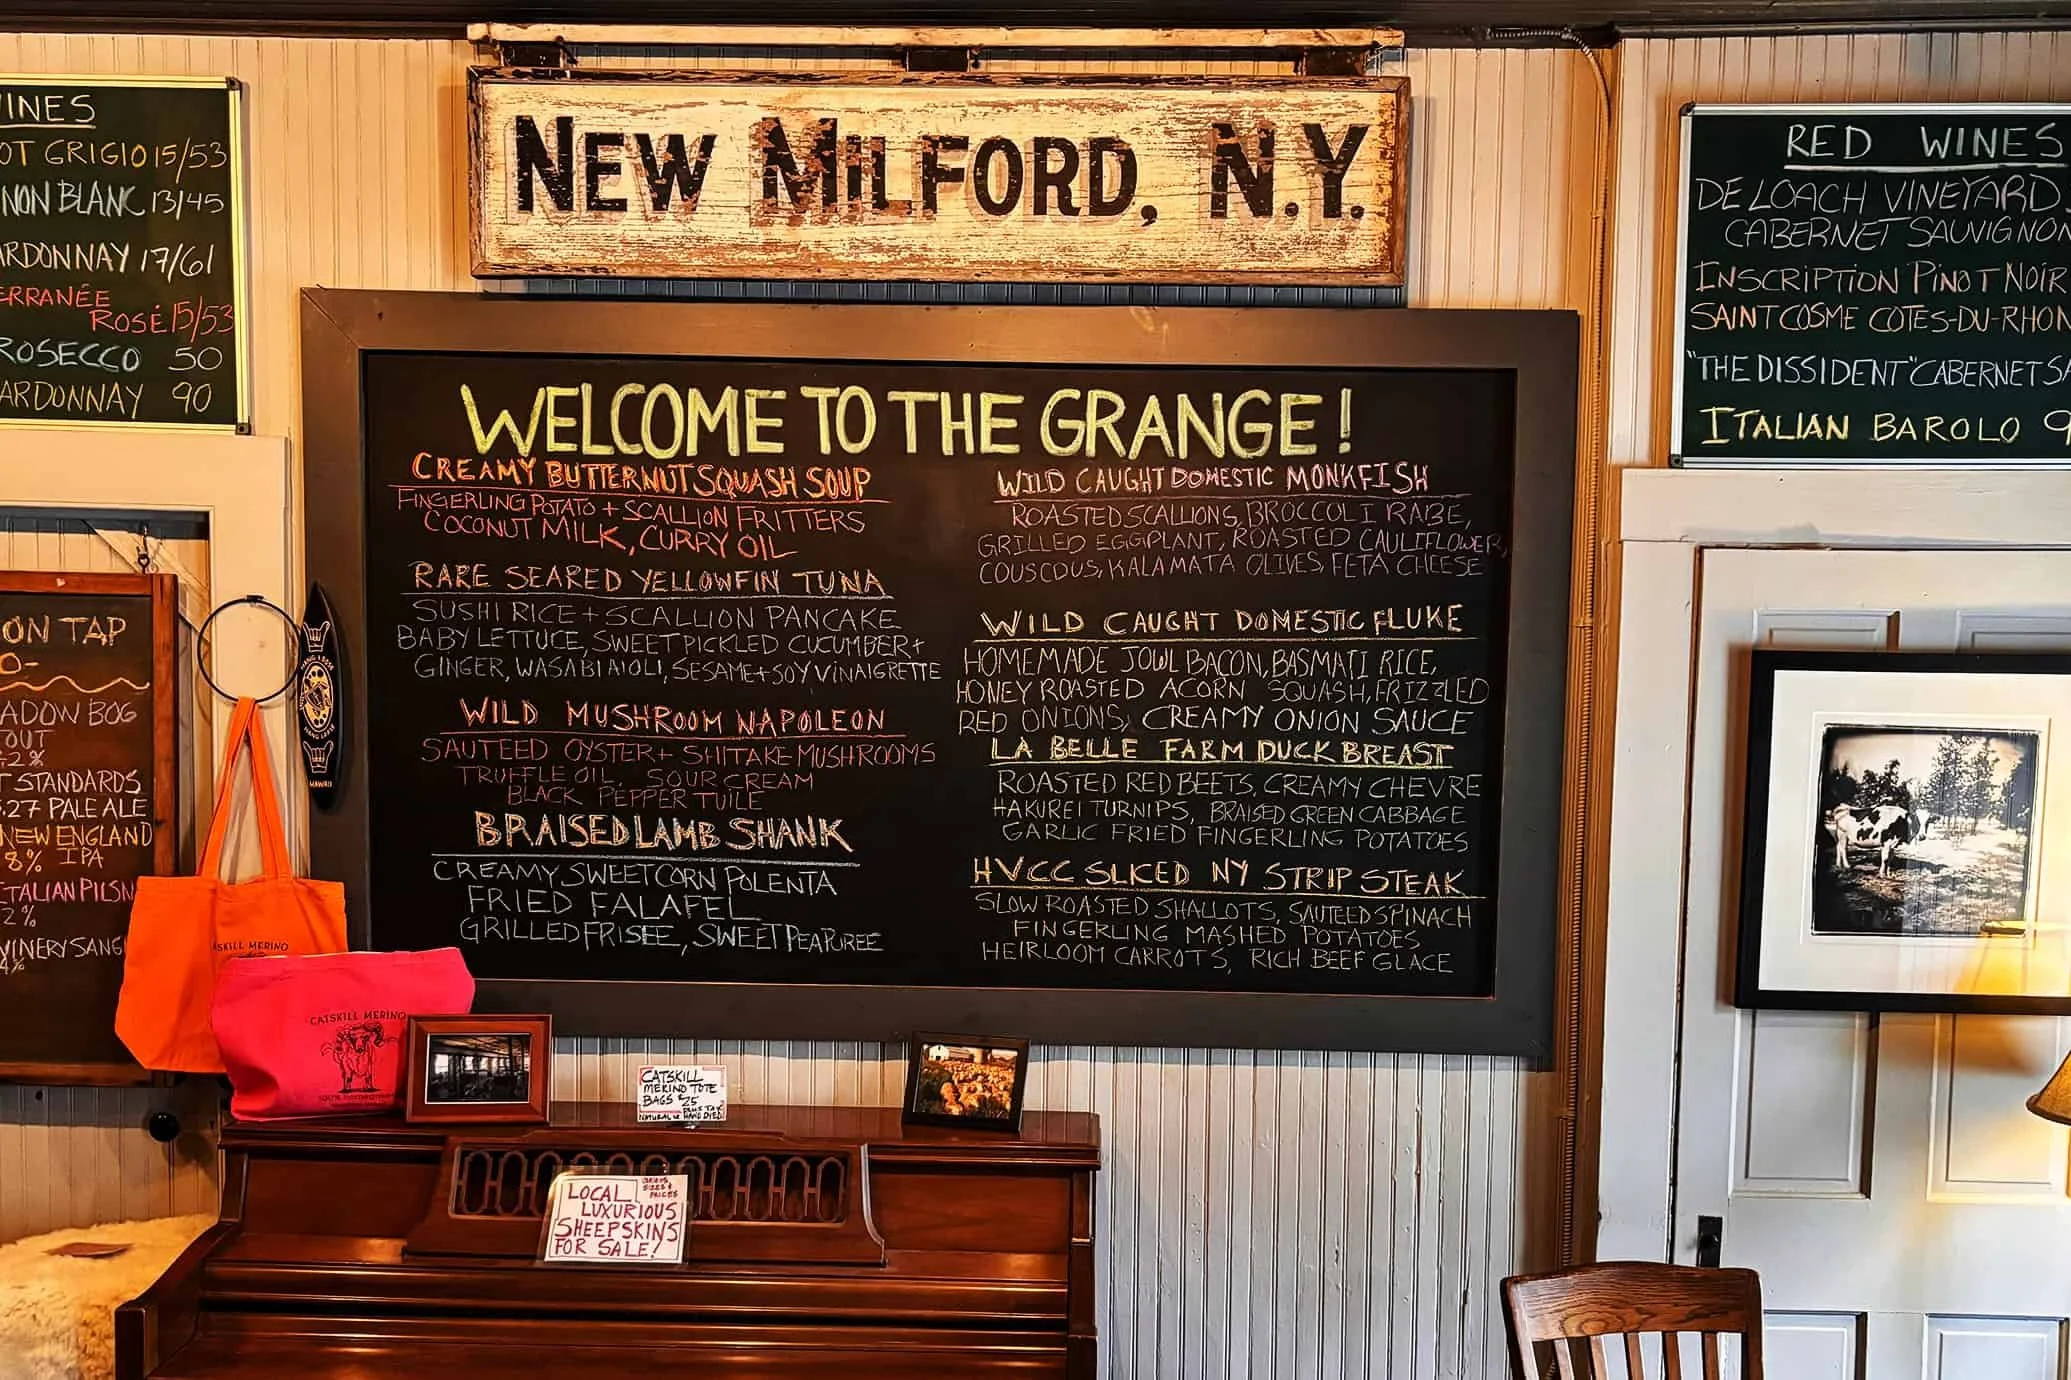 NEW MILFORD, N.Y.
INES
OT GRIGIO 15/53
NON BLANC 13/45
ARDONNAY 17/61
ERRANÉE
ROSÉ 15/53
ROSECCO 50
ARDONNAY 90
ON TAP
ADOW BOG
OUT
.2%
T STANDARDS
.27 PALE ALE
NEW ENGLAND
8% IPA
ITALIAN PILSN
2%
WINERY SANG
4%
WELCOME TO THE GRANGE!
CREAMY BUTTERNUT SQUASH SOUP
FINGERLING POTATO + SCALLION FRITTERS
COCONUT MILK, CURRY OIL
RARE SEARED YELLOWFIN TUNA
SUSHI RICE + SCALLION PANCAKE
BABY LETTUCE, SWEET PICKLED CUCUMBER +
GINGER, WASABI AIOLI, SESAME + SOY VINAIGRETTE
WILD MUSHROOM NAPOLEON
SAUTEED OYSTER + SHITAKE MUSHROOMS
TRUFFLE OIL, SOUR CREAM
BLACK PEPPER TUILE
BRAISED LAMB SHANK
CREAMY SWEET CORN POLENTA
FRIED FALAFEL
GRILLED FRISEE, SWEET PEA PUREE
WILD CAUGHT DOMESTIC MONKFISH
ROASTED SCALLIONS, BROCCOLI RABE,
GRILLED EGGPLANT, ROASTED CAULIFLOWER,
COUSCOUS, KALAMATA OLIVES, FETA CHEESE
WILD CAUGHT DOMESTIC FLUKE
HOMEMADE JOWL BACON, BASMATI RICE,
HONEY ROASTED ACORN SQUASH, FRIZZLED
RED ONIONS, CREAMY ONION SAUCE
LA BELLE FARM DUCK BREAST
ROASTED RED BEETS, CREAMY CHEVRE
HAKUREI TURNIPS, BRAISED GREEN CABBAGE
GARLIC FRIED FINGERLING POTATOES
HVCC SLICED NY STRIP STEAK
SLOW ROASTED SHALLOTS, SAUTEED SPINACH
FINGERLING MASHED POTATOES
HEIRLOOM CARROTS, RICH BEEF GLACE
RED WINES
DE LOACH VINEYARD
CABERNET SAUVIGNON
INSCRIPTION PINOT NOIR
SAINT COSME COTES-DU-RHON
"THE DISSIDENT" CABERNET SA
ITALIAN BAROLO 9
HAWAII
ASKILL MERINO
CATSKILL MERINO
CATSKILL
MERINO TOTE
BAGS $25
PLUS TAX
NATURAL & HAND DYED
LOCAL
LUXURIOUS
SHEEPSKINS
FOR SALE!